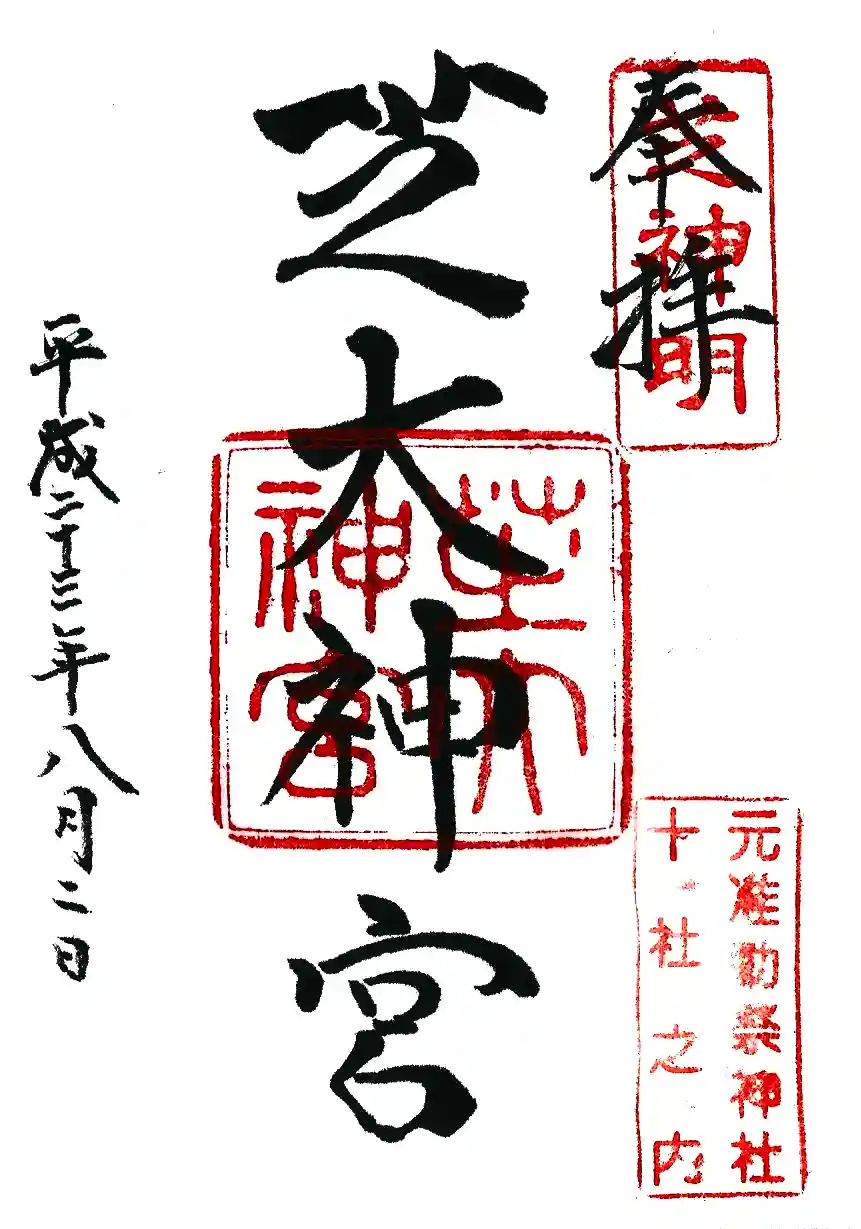 奉拝
芝神明
元准勅祭神社
十社之内
芝大神宮
芝大神宮
平成二十三年八月二日